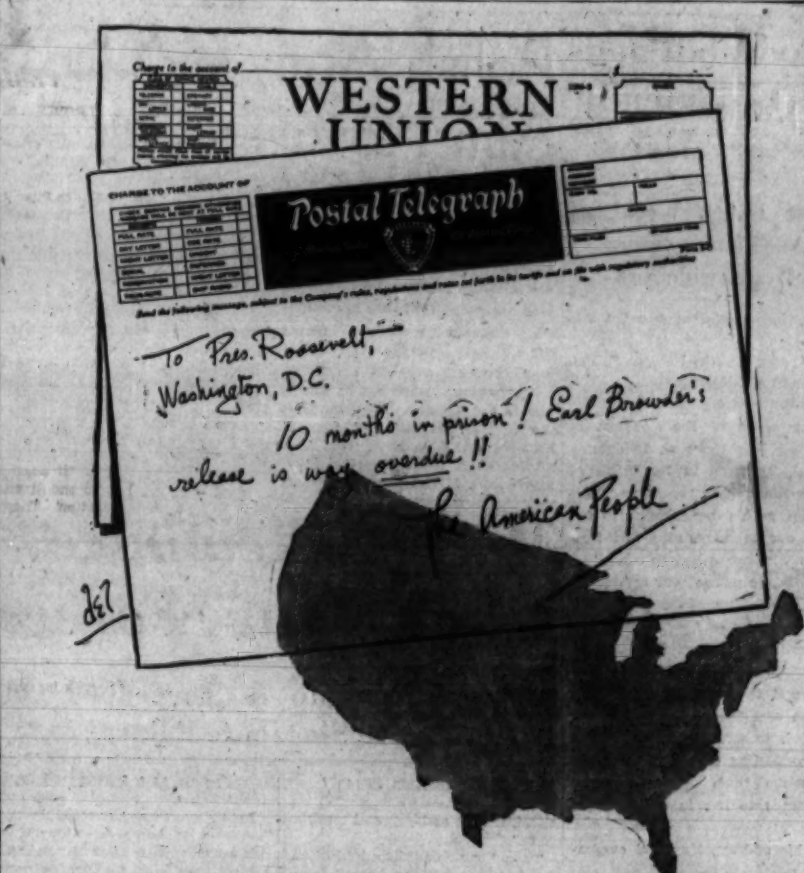 Charge to the account of
$
WESTERN
UNION
CHARGE TO THE ACCOUNT OF
Postal Telegraph
FULL RATE
FULL RATE
DAY LETTER
NIGHT LETTER
SERIAL
NIGHT LETTER
SHIP RADIO
Send the following message, subject to the Company's rules, regulations and rates set forth in its tariffs and on file with regulatory authorities
To Pres. Roosevelt,
Washington, D.C.
10 months in prison! Earl Browder's
release is way overdue!!
The American People
del